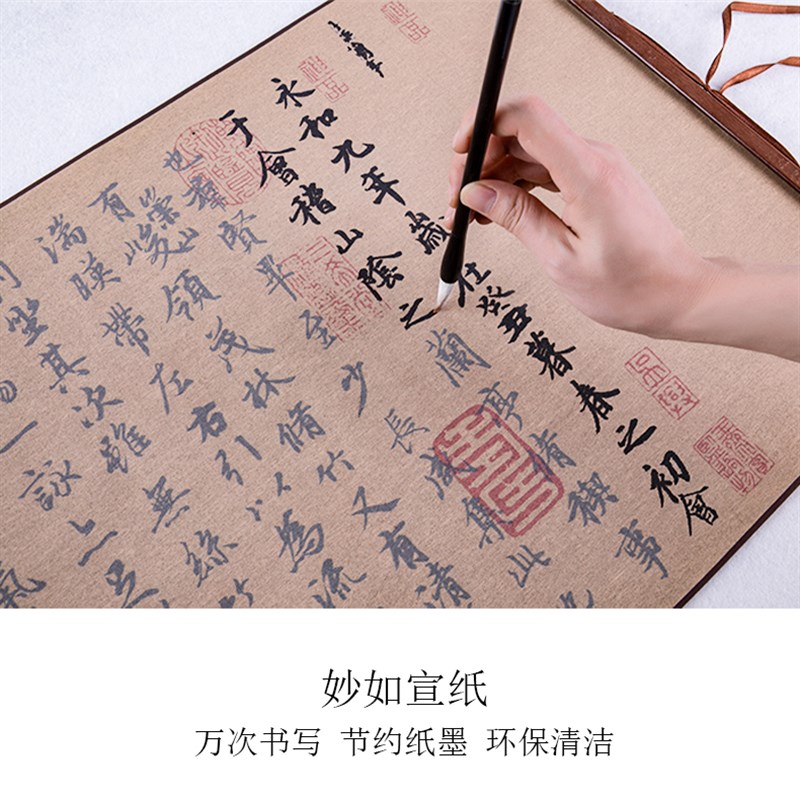 永和九年歲在癸丑暮春之初會
于會稽山陰之蘭亭脩禊事
也群賢畢至少長咸集此地
有崇山峻領茂林脩竹又有清
湍暎帶左右引以為流
列坐其次雖無絲竹
一詠
足
氣
妙如宣纸
万次书写 节约纸墨 环保清洁